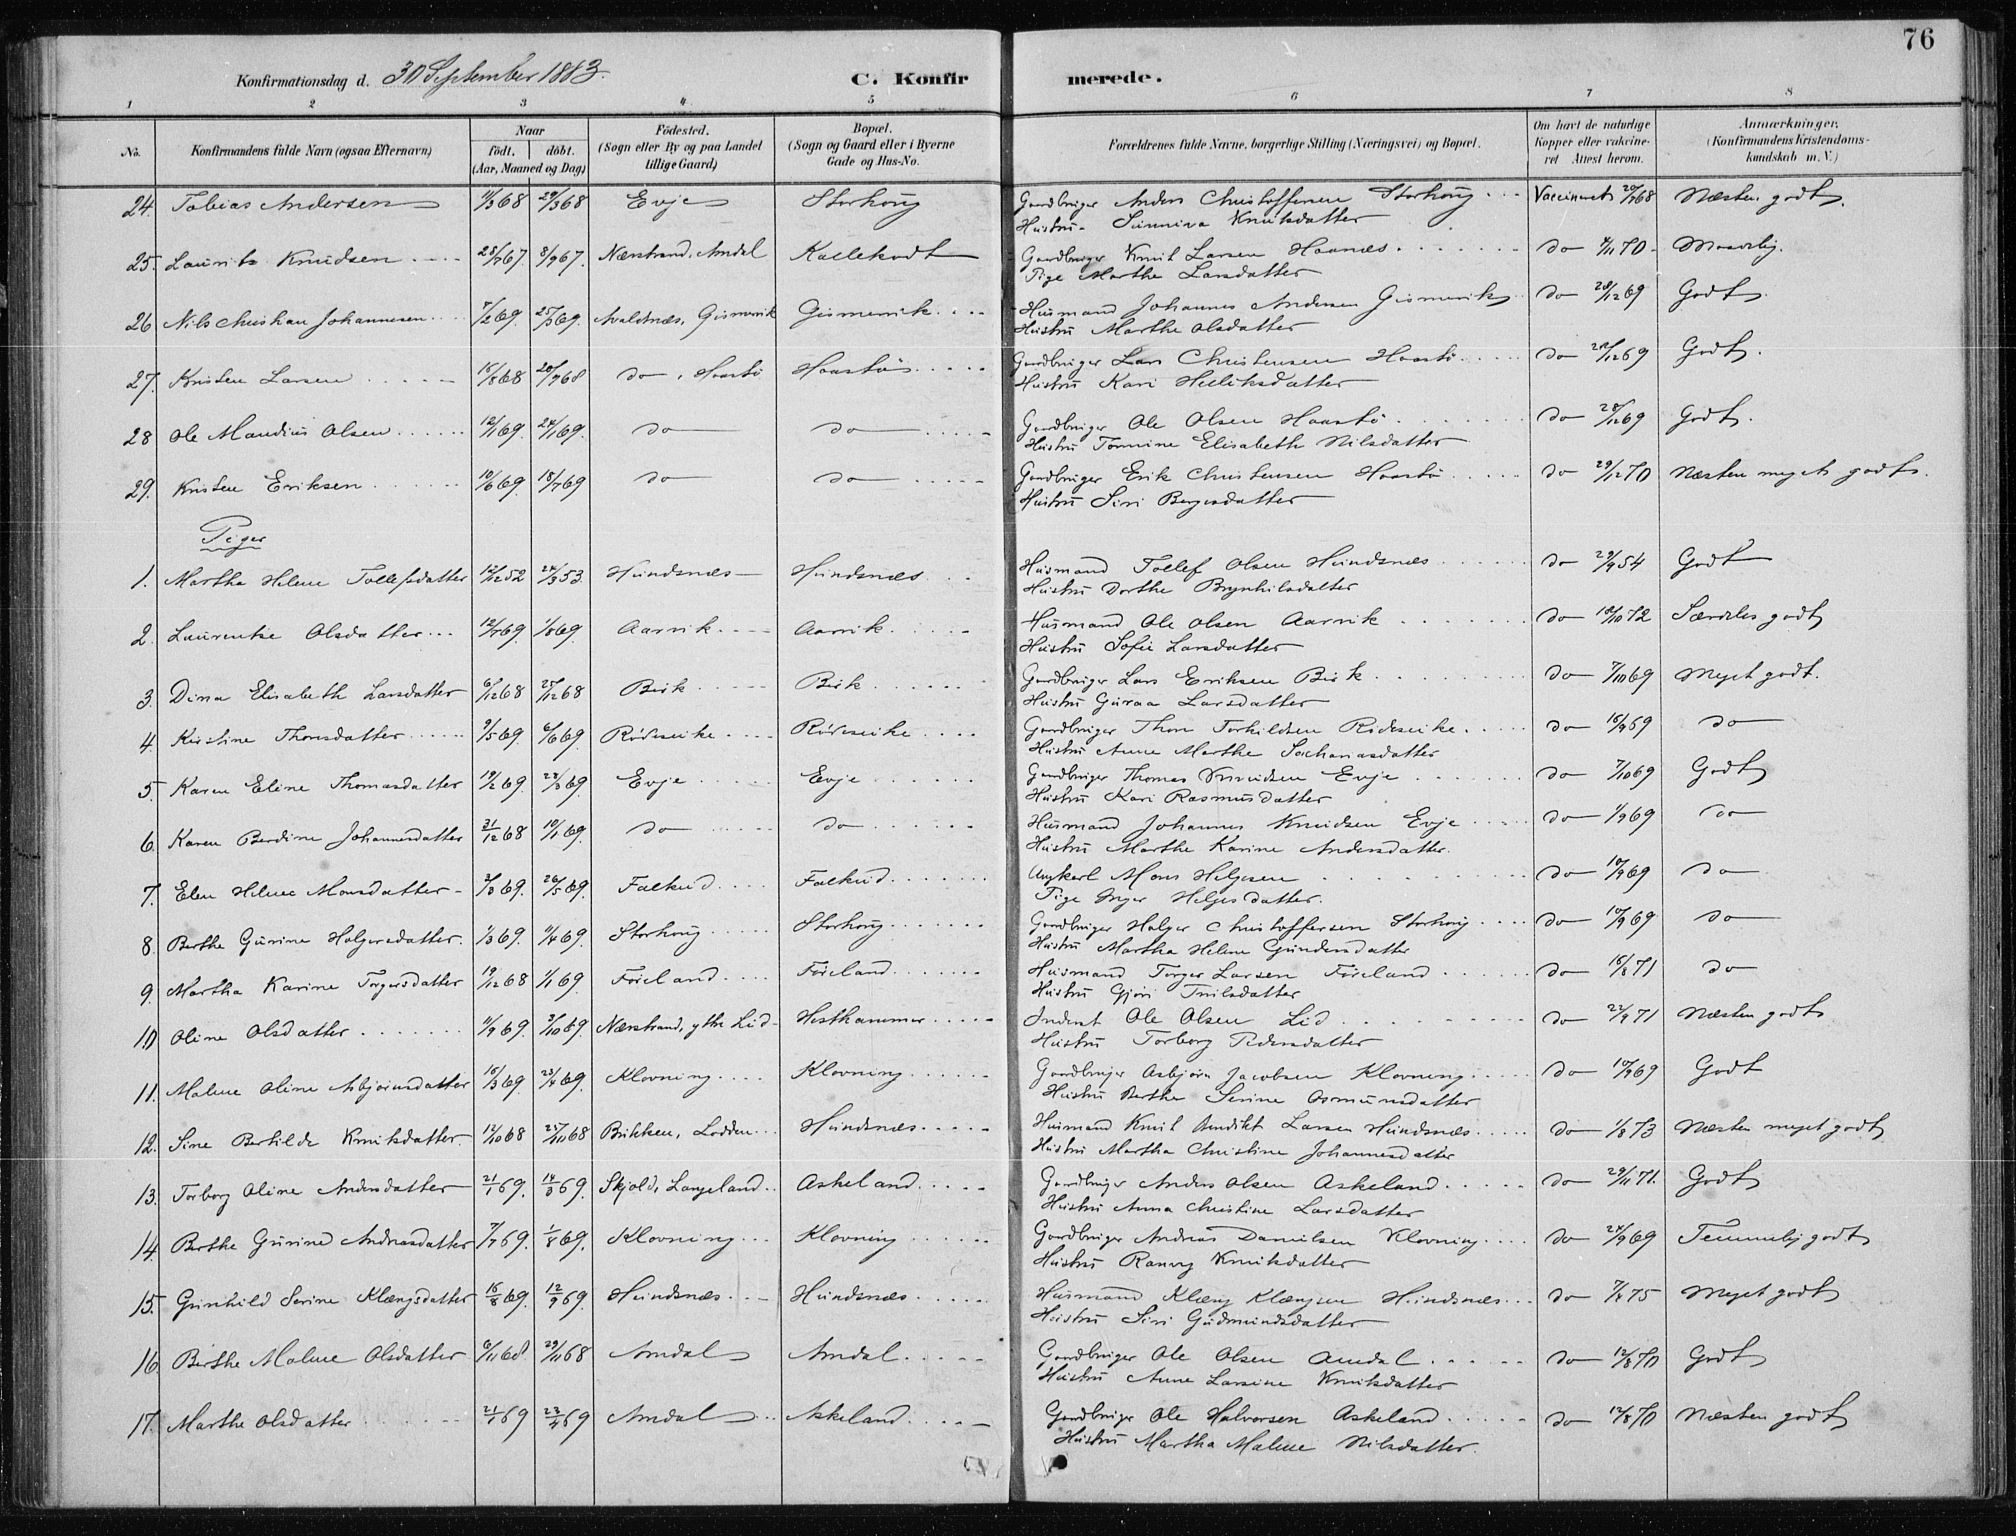 76
Konfirmationsdag d. 30 September 1883.
C. Konfirmerede.
1 2 3 4 5 6 7 8
No. Konfirmandens fulde Navn (ogsaa Efternavn) Naar født. døbt. (Aar, Maaned og Dag) Fødested. (Sogn eller By og paa Landet tillige Gaard) Bopæl. (Sogn og Gaard eller i Byerne Gade og Hus-No. Forældrenes fulde Navne, borgerlige Stilling (Næringsvei) og Bopæl. Om havt de naturlige Kopper eller vakcineret Attest herom. Anmærkninger, (Konfirmandens Kristendomskundskab m. V.)
24. Tobias Andersen 11/3 68 29/3 68 Evje Storhoug Gaardbruger Anders Christoffersen Storhoug Vaccineret 20/7 68 Næsten godt.
Hustru Sunniva Knutsdatter
25. Laurits Knudsen 28/7 67. 8/9 67. Nærstrand, Amdal Gaardbruger Knut Larsen Haanæs do 4/11 70 Maadelig.
Pige Marthe Larsdatter
26 Nils Christian Johannesen 7/2 69. 25/3 69. Avaldsnæs, Gismervik Gismervik Husmand Johannes Andersen Gismervik do 28/12 69 Godt.
Hustru Marthe Olsdatter
27. Kristen Larsen 15/8 68 20/9 68 do, Haastø Haastø Gaardbruger Lars Christensen Haastø do 28/12 69 Godt.
Hustru Kari Helliksdatter
28 Ole Mandius Olsen 12/1 69. 24/1 69. do do Gaardbruger Ole Olsen Haastø do 28/12 69 Godt.
Hustru Tomine Elisabeth Nilsdatter
29. Kristen Eriksen 10/6 69. 18/7 69 do do Gaardbruger Erik Christensen Haastø do 29/12 70 Næsten meget godt.
Hustru Siri Børgesdatter
Piger
1. Martha Helene Tollefsdatter 12/12 52 24/3 53. Hundsnæs Hundsnæs Husmand Tollef Olsen Hundsnæs do 29/9 54 Godt
Hustru Dorthe Brynhilsdatter
2. Laurentse Olsdatter 12/7 69. 1/8 69. Aarvik Aarvik Husmand Ole Olsen Aarvik do 18/10 72 Særdeles godt
Hustru Sofie Larsdatter
3. Dina Elisabeth Larsdatter 6/12 68 25/12 68 Birk Birk Gaardbruger Lars Eriksen Birk do 7/10 69 Meget godt.
Hustru Guraa Larsdatter
4. Kirstine Thorsdatter 9/5 69. 6/6 69. Rødseike Rødseike Gaardbruger Thore Torkildsen Rødseike do 15/9 69 do
Hustru Anne Marthe Sachariasdatter
5. Karen Eline Thomasdatter 19/2 69. 28/3 69. Evje Evje Gaardbruger Thomas Knudsen Evje do 7/10 69 Godt
Hustru Kari Rasmusdatter
6. Karen Berdine Johannesdatter 31/12 68 10/1 69. do do Husmand Johannes Knudsen Evje do 1/9 69 do
Hustru Marthe Karine Andersdatter.
7. Elen Helene Monsdatter 2/3 69. 26/5 69. Falkeid Falkeid Ungkarl Mons Helgesen do 10/9 69 do
Pige Inger Helgesdatter.
8 Berthe Gurine Holgersdatter. 1/3 69. 11/4 69. Storhoug Storhoug Gaardbruger Holger Christoffersen Storhoug do 10/9 69 do
Hustru Martha Helene Gundersdatter
9. Martha Karine Torgersdatter 19/12 68 1/1 69. Føieland Føieland Husmand Torger Larsen Føieland do 15/8 71 do
Hustru Gjøri Truilsdatter
10 Oline Olsdatter 11/9 69. 3/10 69. Nærstrand, ytre Lid Hesthammer Inderst Ole Olsen Lid do 22/9 71 Næsten godt
Hustru Torborg Pedersdatter
11. Malene Oline Asbjørnsdatter 15/3 69. 23/4 69. Klovning Klovning Gaardbruger Asbjørn Jacobsen Klovning do 10/9 69 Godt
Hustru Berthe Serine Osmundsdatter
12. Sine Bertilde Knutsdatter 12/10 68 25/10 68 Bukken, Lodden Hundsnæs Husmand Knut Bendikt Larsen Hundsnæs do 1/8 73 Næsten meget godt
Hustru Martha Christine Johannesdatter
13. Torborg Oline Andersdatter 21/1 69. 14/3 69. Skjold, Langeland Askeland Gaardbruger Anders Olsen Askeland do 29/11 71. Godt
Hustru Anna Christine Larsdatter
14. Berthe Gurine Andreasdatter 7/7 69. 1/8 69. Klovning Klovning Gaardbruger Andreas Danielsen Klovning do 24/9 69 Temmelig godt
Hustru Ranveig Knutsdatter
15. Gunhild Serine Klængsdatter 16/8 69. 12/9 69. Hundsnæs Hundsnæs Husmand Klæng Klængsen Hundsnæs do 7/8 75 Meget godt
Hustru Siri Gudmundsdatter
16. Berthe Malene Olsdatter 6/11 68. 29/11 68 Amdal Amdal Gaardbruger Ole Olsen Amdal do 12/8 70 Godt
Hustru Anne Larsine Knutsdatter
17. Marthe Olsdatter 21/1 69 23/4 69 Amdal Askeland Gaardbruger Ole Halvorsen Askeland do 12/8 70 Næsten godt
Hustru Martha Malene Nilsdatter.